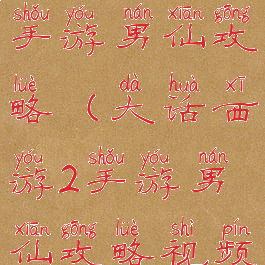 shǒu yóu nán xiān gōng
手游男仙攻
lüè dà huà xī
略(大话西
yóu shǒu yóu nán
游2手游男
xiān gōng lüè shì pín
仙攻略视频